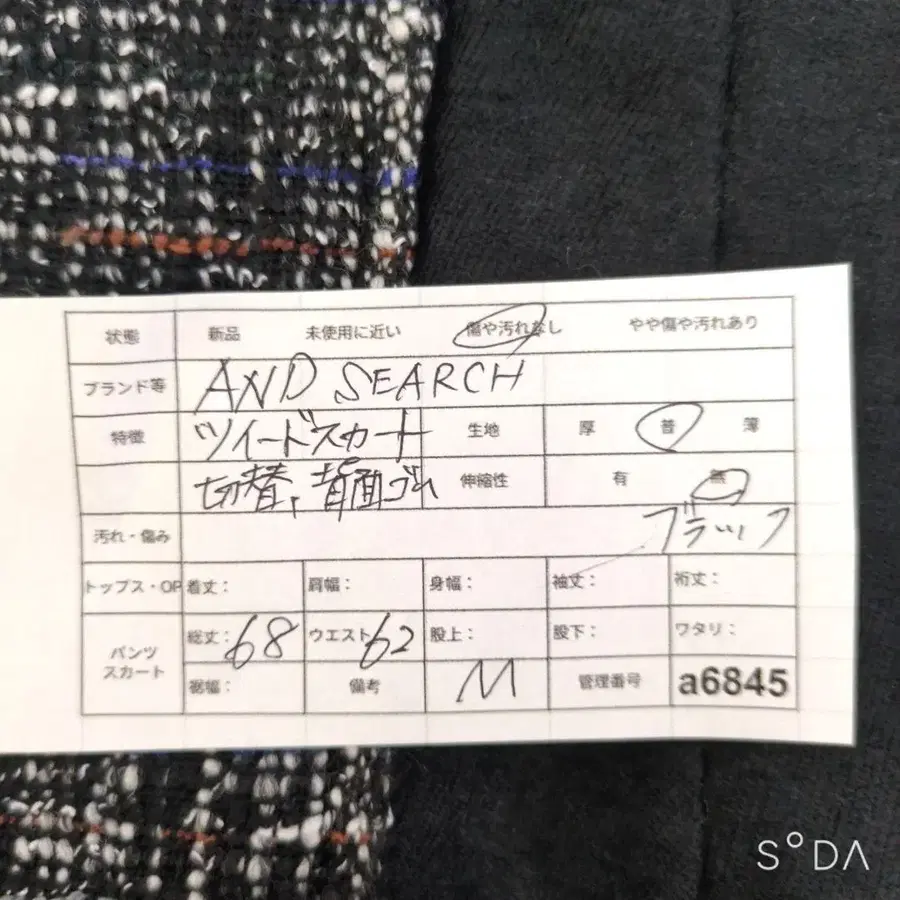 状態 新品 未使用に近い 傷や汚れなし やや傷や汚れあり
ブランド等 AND SEARCH
特徴 ツイードスカート 生地 厚 普 薄
切替、背面ゴム 伸縮性 有 無
汚れ・傷み ブラック
トップス・OP 着丈: 肩幅: 身幅: 袖丈: 裄丈:
パンツ スカート 総丈:68 ウエスト62 股上: 股下: ワタリ:
裾幅: 備考 M 管理番号 a6845
SODA